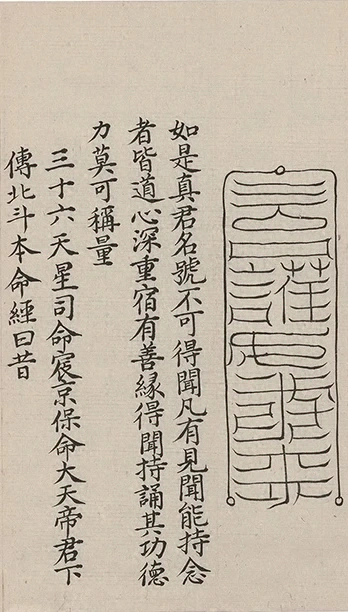 如是真君名號不可得聞凡有見聞能持念
者皆道心深重宿有善緣得聞持誦其功德
力莫可稱量
三十六天星司命寢京保命大天帝君下
傳北斗本命經曰昔